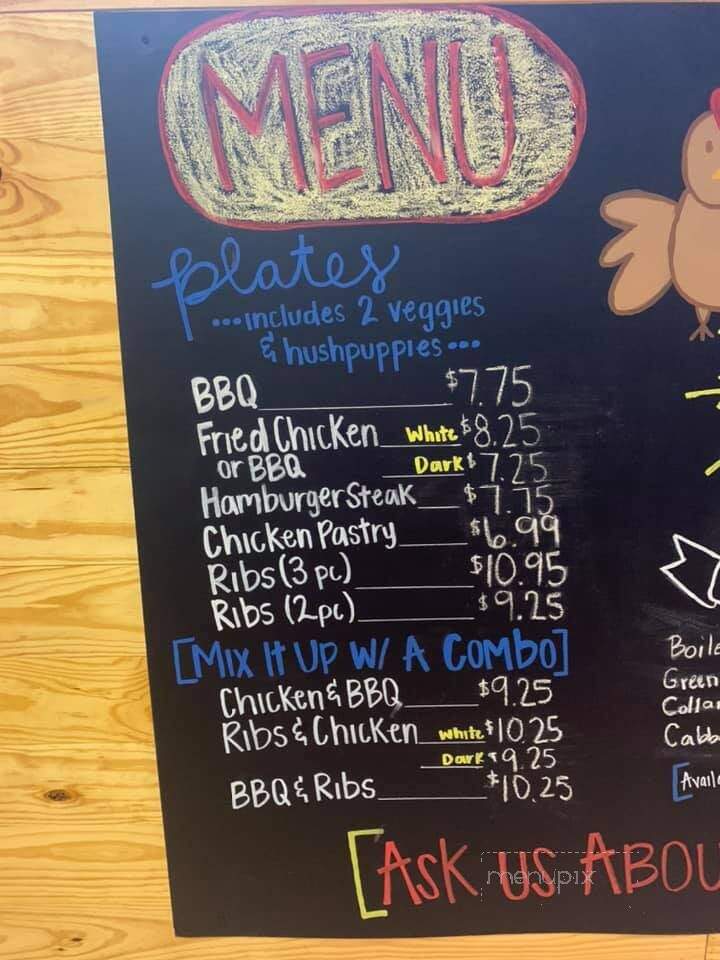 MENU
plates
...includes 2 veggies
& hushpuppies...
BBQ $7.75
Fried Chicken White $8.25
or BBQ Dark $7.25
Hamburger Steak $7.75
Chicken Pastry $6.99
Ribs (3 pc) $10.95
Ribs (2pc) $9.25
[Mix It Up W/ A Combo]
Chicken & BBQ $9.25
Ribs & Chicken White $10.25
Dark $9.25
BBQ & Ribs $10.25
Boile
Green
Collar
Cabb
[Avail
[Ask us Abou
menupix